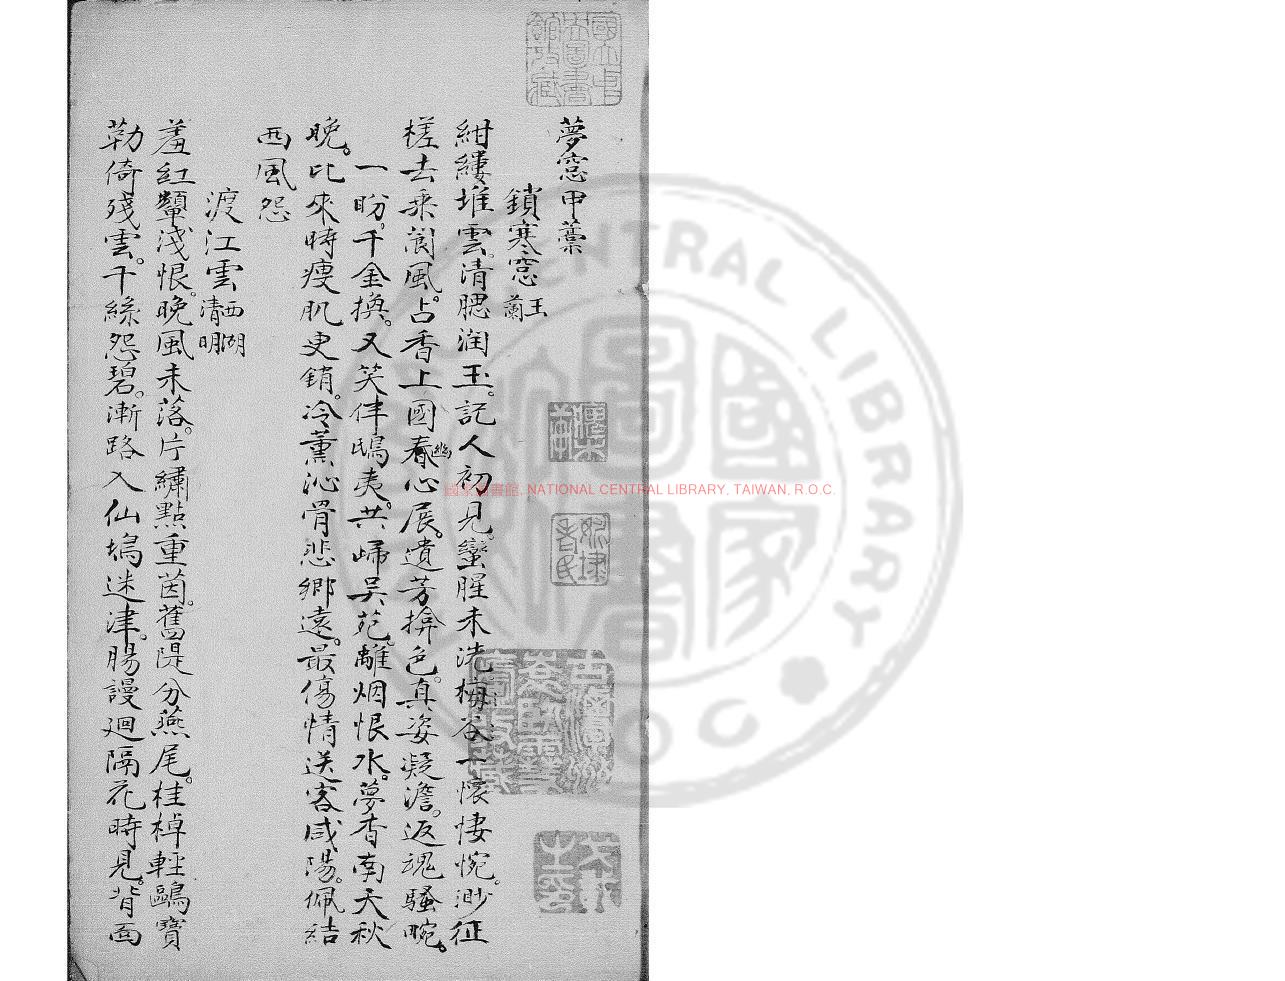 夢窓甲藁
鎖寒窓 玉蘭
紺縷堆雲。清腮潤玉。記人初見。蠻腥未洗。梅谷一懷悽惋。渺征
槎去乘閬風。占香上國幽心展。遺芳揜色。真姿凝澹。返魂騷畹。
一盼。千金換。又笑伴鴟夷。共歸吴苑。離烟恨水。夢杳南天秋
晚。比來時瘦肌更銷。冷薰沁骨悲鄉遠。最傷情送客咸陽。佩結
西風怨
渡江雲 西湖清明
羞紅顰淺恨。晚風未落。片繡點重茵。舊隄分燕尾。桂棹輕鷗。寶
勒倚殘雲。千絲怨碧。漸路入仙塢迷津。腸謾廻隔花時見。背面
國家圖書館, NATIONAL CENTRAL LIBRARY, TAIWAN, R.O.C.